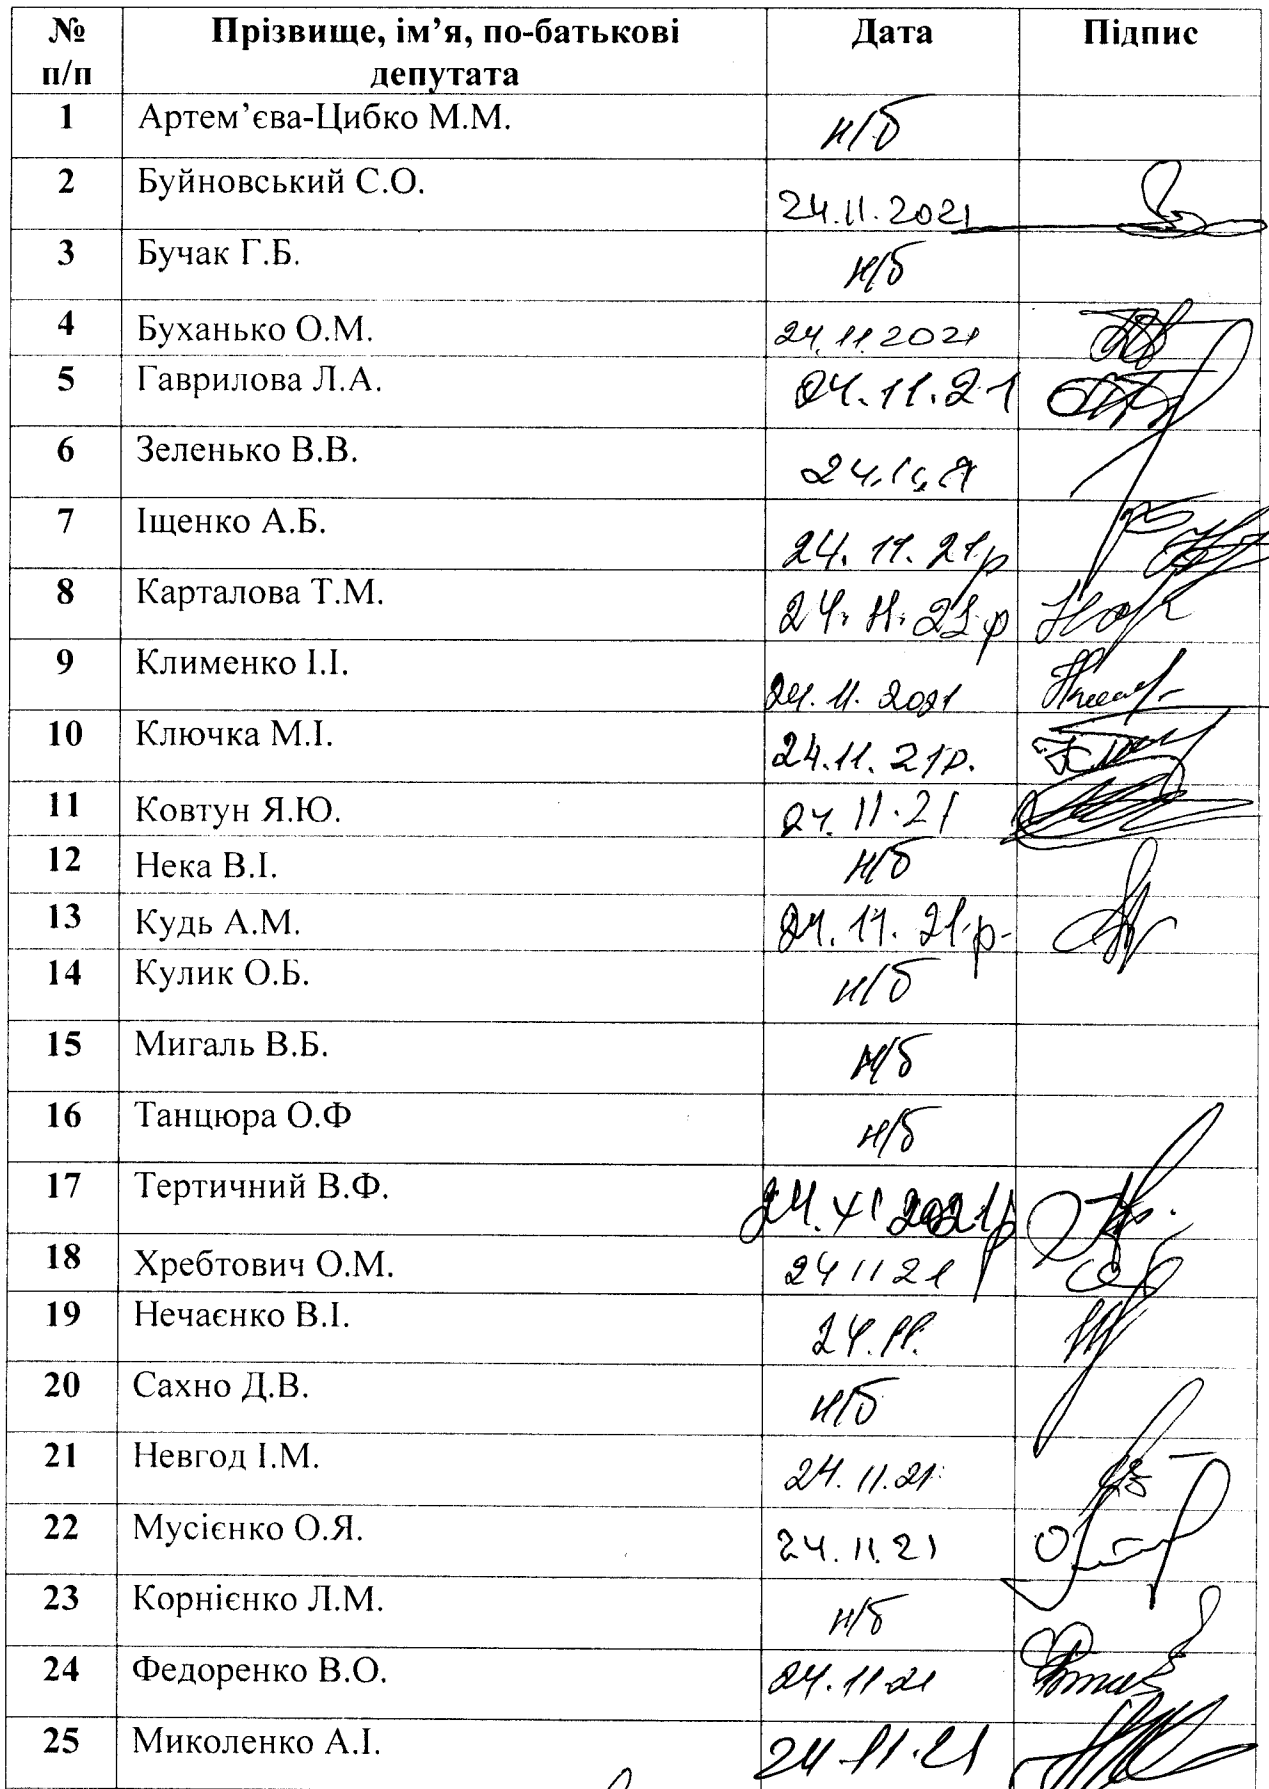 № Прізвище, ім’я, по-батькові Дата Підпис
п/п депутата
1 Артем’єва-Цибко М.М. н/б
2 Буйновський С.О. 24.11.2021
3 Бучак Г.Б. н/б
4 Буханько О.М. 24.11.2021
5 Гаврилова Л.А. 24.11.21
6 Зеленько В.В.
7 Іщенко А.Б. 24.11.21р
8 Карталова Т.М. 24.11.21р
9 Клименко І.І. 24.11.2021
10 Ключка М.І. 24.11.21р.
11 Ковтун Я.Ю. 24.11.21
12 Нека В.І. н/б
13 Кудь А.М. 24.11.21р-
14 Кулик О.Б. н/б
15 Мигаль В.Б. н/б
16 Танцюра О.Ф н/б
17 Тертичний В.Ф. 24.XI 2021р
18 Хребтович О.М. 24 11 21
19 Нечаєнко В.І. 24.11.
20 Сахно Д.В. н/б
21 Невгод І.М. 24.11.21
22 Мусієнко О.Я. 24.11.21
23 Корнієнко Л.М. н/б
24 Федоренко В.О. 24.11.21
25 Миколенко А.І. 24.11.21